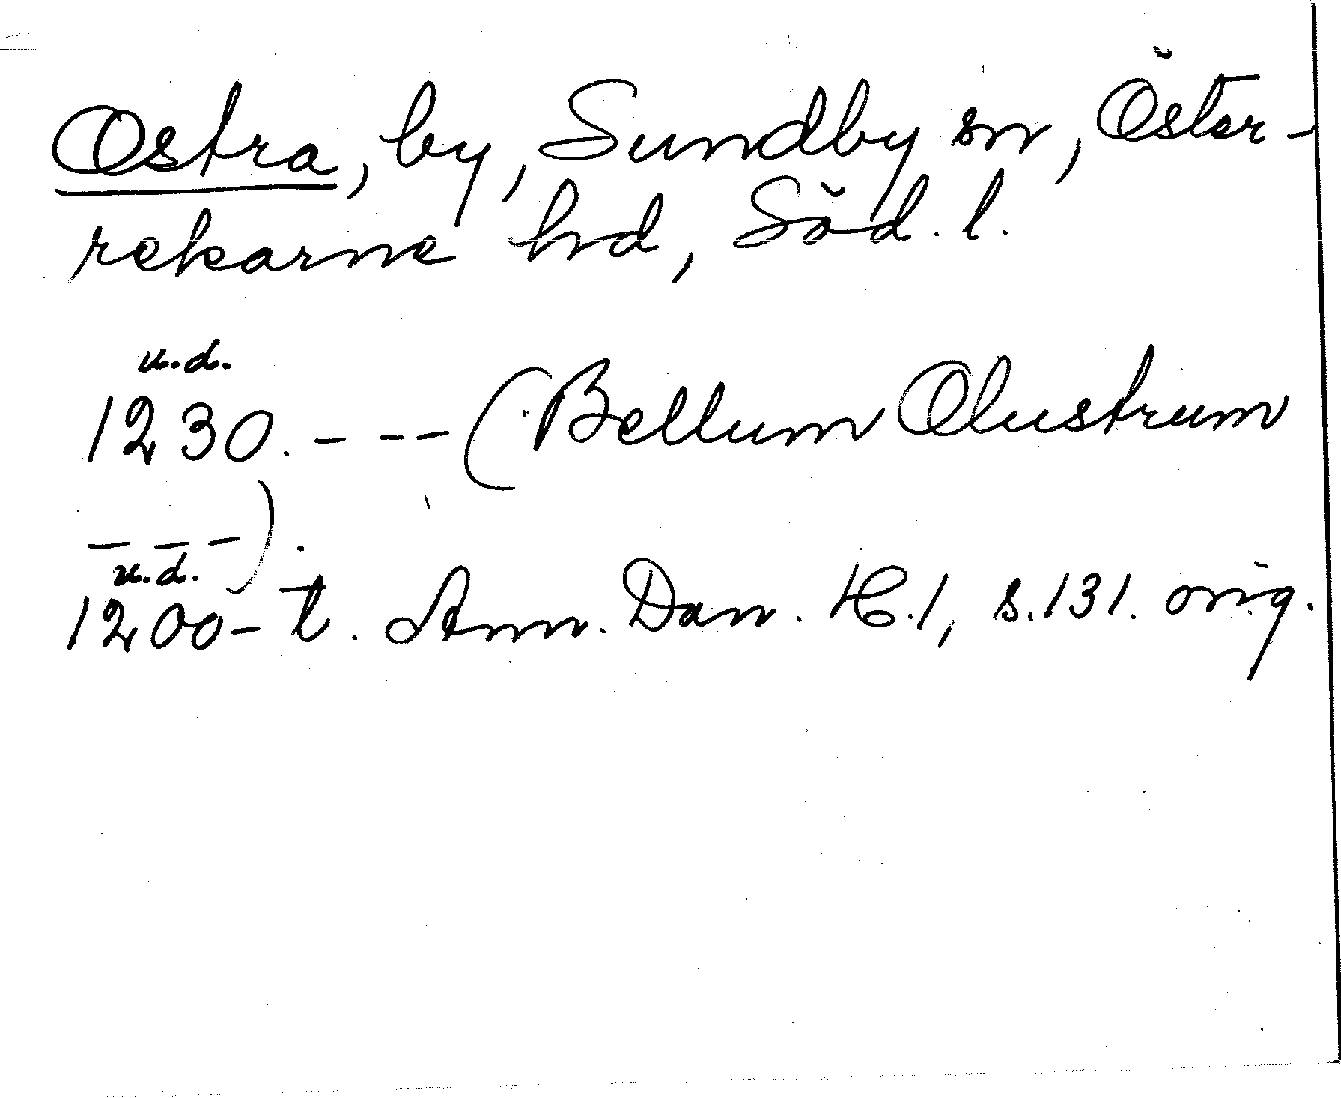 Ostra, by, Sundby sn, Öster-
rekarne hd, Söd. l.
u.d.
1230. - - - (Bellum Olustrum
- - - ).
u.d.
1200-t. Ann. Dan. H.1, s.131. orig.